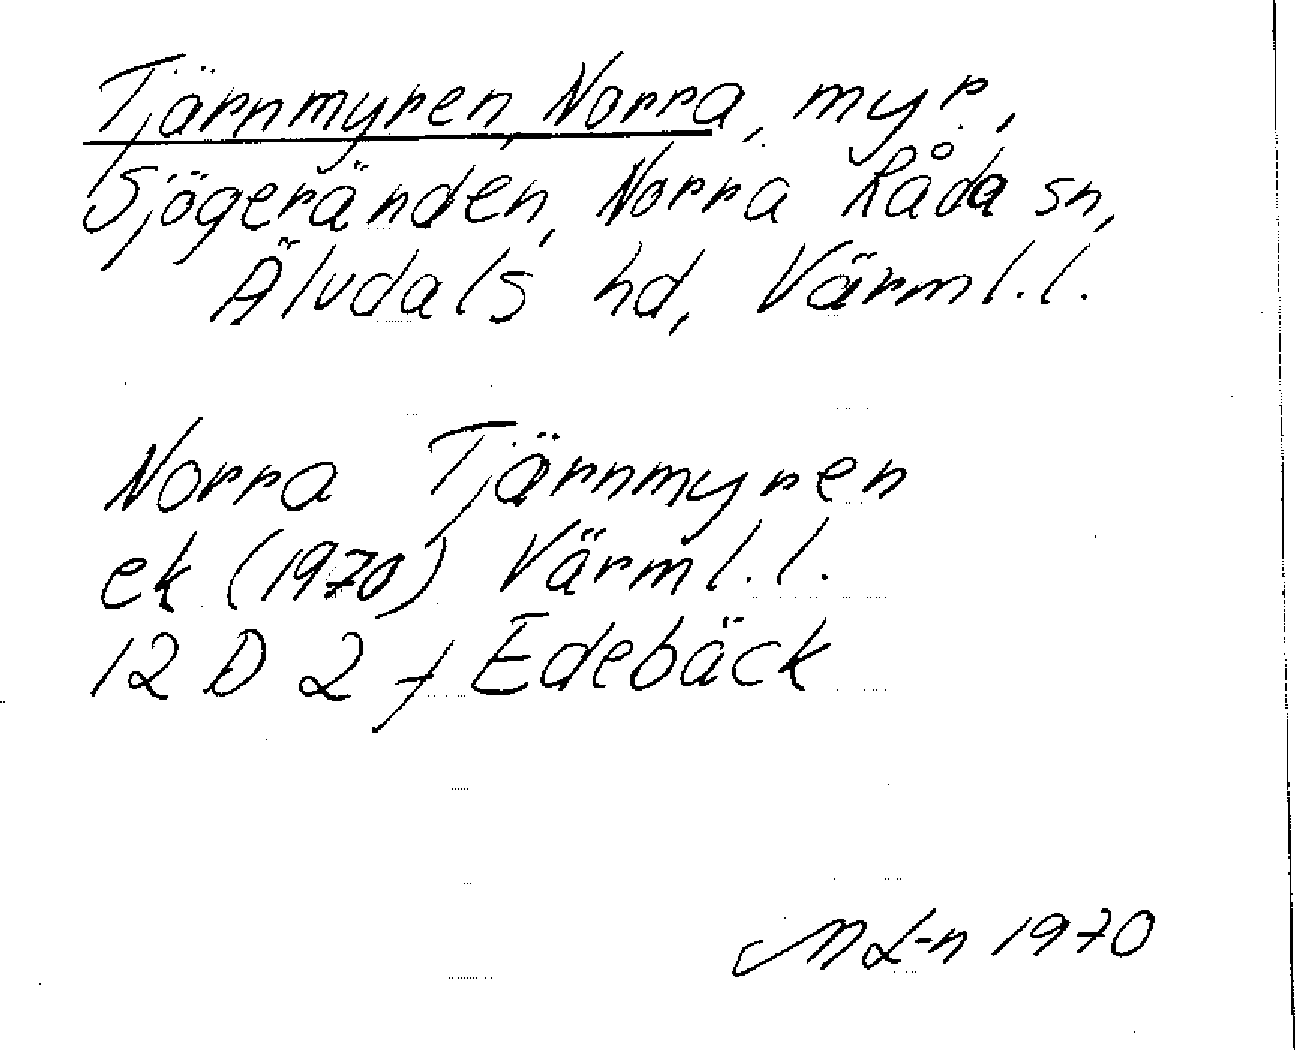 Tjärnmyren, Norra, myr,
Sjögeränden, Norra Råda sn,
Älvdals hd, Värml.l.
Norra Tjärnmyren
ek (1970) Värml.l.
12 D 2 f Edebäck
M L-n 1970